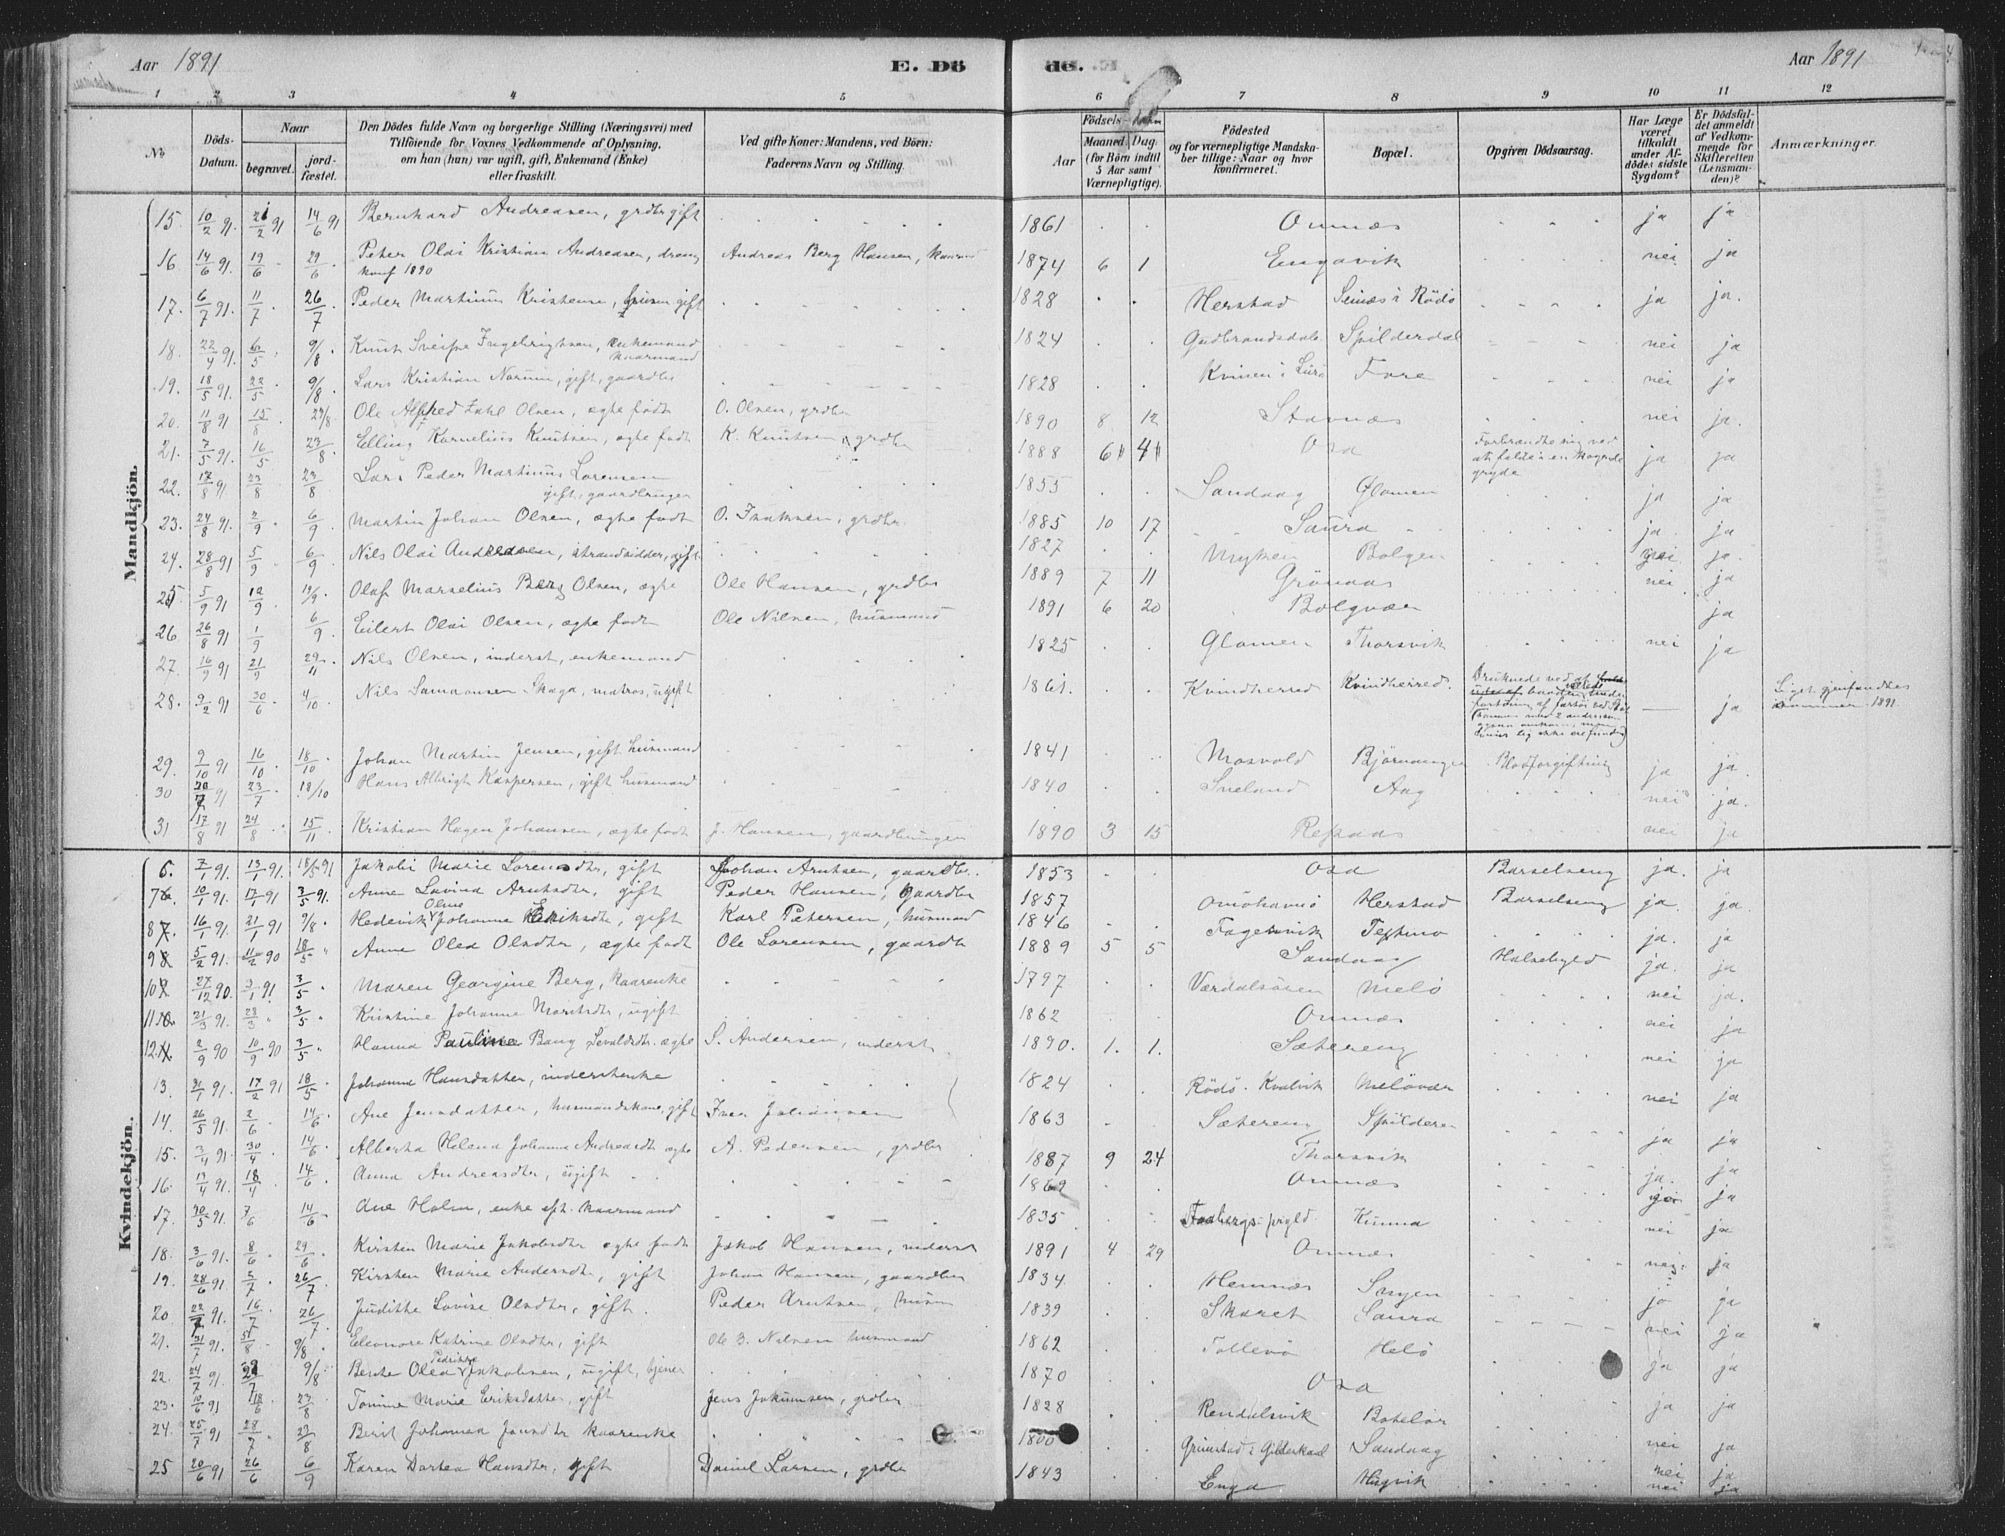 Aar 1891
E. Dö
de.
Aar 1891
1 2 3 4 5 6 7 8 9 10 11 12
No.
Döds-Datum.
Naar
begravet.
jord-fæstet.
Den Dödes fulde Navn og borgerlige Stilling (Næringsvei) med
Tilföiende for Voxnes Vedkommende af Oplysning,
om han (hun) var ugift, gift, Enkemand (Enke)
eller fraskilt.
Ved gifte Koner: Mandens, ved Börn:
Faderens Navn og Stilling.
Födsels-
Aar
Maaned. Dag.
(for Börn indtil
5 Aar samt
Værnepligtige).
Födested
og for værnepligtige Mandska-
ber tillige: Naar og hvor
konfirmeret.
Bopæl.
Opgiven Dödsaarsag.
Har Læge
været
tilkaldt
under Af-
dödes sidste
Sygdom?
Er Dödsfal-
det anmeldt
af Vedkom-
mende for
Skifteretten
(Lensman-
den)?
Anmærkninger.
Mandkjön.
15. 10/2 91. 21/2 91 14/6 91 Bernhard Andreasen, grdbr gift 1861 Onnæs ja ja
16. 14/6 91. 19/6 29/6 Peter Olai Kristian Andreasen, dreng Andreas Berg Hansen, 1874 6 1 Engavik nei ja
konf 1890
17. 6/7 91. 11/7 26/7 Peder Martinus Kristensen, gift 1828 Herstad Selnæs i Rödö ja ja.
18. 22/4 91. 6/5 9/8 Knut Ingebrigtsen, enkemand 1824 Gudbrandsdale Spilderdal nei ja
kaarmand
19. 18/5 91. 22/5 9/8. Lars Kristian Norum, gift, gaardbr 1828 Kvinen i Lurö Fore nei ja
20. 11/8 91 15/8 23/8 Ole Alfred Zahl Olsen, ægte födt O. Olsen, grdbr 1890 8 12 Stavnæs nei ja.
21. 7/5 91. 16/5 23/8. Elling Kornelius Knutsen, ægte födt K. Knutsen, grdbr 1888 6 4 Osa Forbrændte sig ved ja ja
at falde i en kogende
gryde
22. 17/8 91 23/8 23/8 Lars Peder Martinus Lorensen 1855 Sandaag Glomen ja ja
gift, gaardbruger
23. 24/8 91. 2/9 6/9 Martin Johan Olsen, ægte födt O. Isaksen, grdbr. 1885 10 17 Saura ja ja
24. 28/8 91 5/9 6/9 Nils Olai Andreasen, strandsidder, gift 1827 Myken Bolgen nei ja.
25 5/9 91 12/9 19/9. Olaf Marselius Berg Olsen, ægte Ole Hansen, grdbr 1889 7 11 Grönaas nei ja
26. 26/8 91 1/9 6/9. Eilert Olai Olsen, ægte födt Ole Nilsen, husmand 1891 6 20 Bolgvær ja
27. 16/9 91 21/9 29/11 Nils Olsen, inderst, enkemand 1825 Glomen Thorsvik nei ja
28. 9/2 91 30/6 4/10 Nils Samsonsen Skaga, matros, ugift 1861. Kvindherred Kvindherred. Druknede ved at ja Liget gjenfandtes
sommer 1891.
29. 9/10 91 16/10 18/10 Johan Martin Jensen, gift husmand 1841 Mosvold Björnangen Blodforgiftning ja ja.
30 20/7 91 23/7 18/10 Hans Albrigt Kaspersen, gift husmand 1840 Sneland Aag nei ja.
31 17/8 91 24/8 15/11 Kristian Hagen Johansen, ægte födt J. Hansen, gaardbruger 1890 3 15 Repaas nei ja
Kvindekjön.
6. 7/1 91. 13/1 91. 18/5 91 Jakobi Marie Lorensdtr, gift Johan Arntsen, gaardbr. 1853 Osa Barselseng ja. ja
7 10/1 91. 17/1 91 3/5 91. Anne Lovina Arntsdtr, gift Peder Hansen, gaardbr 1857 Omöhavnö Herstad Barselseng ja. ja.
8 16/1 91. 21/1 91 9/8 Hedevik Oline Johanna Eriksdtr, gift Karl Petersen, husmand 1846 Fagervik Teksmo ja. ja
9 5/2 91. 11/2 90 18/5 Anne Olea Olsdtr, ægte födt Ole Lorensen, gaardbr 1889 5 5 Sandaag Halsebyld ja. ja
10 27/12 90. 3/1 91 3/5 Maren Georgine Berg, kaarenke 1797 Værdalsören Melö nei ja.
11 21/3 91. 28/3 3/5 Kristine Johanne Martsdtr, ugift 1862 Onnæs nei ja
12 2/9 90 10/9 90 3/5 Hanna Pauline Bang Sevaldsdtr. ægte S. Andersen, inderst 1890. 1. 1. Sætereng nei ja
13. 31/1 91. 17/2 91 18/5 Johanna Hansdatter, inderstenke 1824 Rödö. Kvalvik Melövær nei ja
14. 26/5 91. 2/6 14/6 Ane Jensdatter, husmandskone, gift Iver Johansen 1863 Sætereng Spilderen ja ja
15. 3/4 91. 30/4 14/6. Alberta Helena Johanna Andreasdtr ægte A. Pedersen, grdbr 1887 9 24 Thorsvik ja. ja
16. 13/4 91. 18/4 14/6. Anna Andreasdtr, ugift 1869 Onnæs ja
17. 30/5 91. 7/6 14/6 Ane Holm, enke eft. kaarmand 1835. Kunna nei ja
18. 3/6 91. 8/6 29/6 Kirsten Marie Jakobsdtr ægte födt Jakob Hansen, inderst 1891 4 29 Onnæs nei. ja
19. 28/6 91 5/7 26/7 Kirsten Marie Andersdtr, gift Johan Hansen, gaardbr 1834. Hemnæs ja ja
20 91. 16/7 26/7. Judithe Lovise Olsdtr, gift. Peder Arntsen, husm 1839 Skaret Saura nei ja
21. 31/7 91. 5/8 9/8. Eleonore Katrine Olsdtr, gift Ole B. Nilsen husmand 1862 Tollevö Helö ja ja
22. 24/7 91 29/7 9/8. Berthe Olea Pedrikke Jakobsen, ugift, tjener 1870 Osa
23. 10/6 91 18/6 23/8 Tomine Marie Eriksdatter, gift Jens Joakimsen, grdbr 1828 Rendalsvik Botelör ja ja
24. 25/7 91 28/7 23/8 Berit Johanna kaarenke 1800 Grimstad i Gilderskaal Sandaag nei ja
25 20/6 91 26/6 6/9 Karen Dortea Hansdtr, gift Daniel Larsen, grdbr 1843 Enga Hugvik nei ja